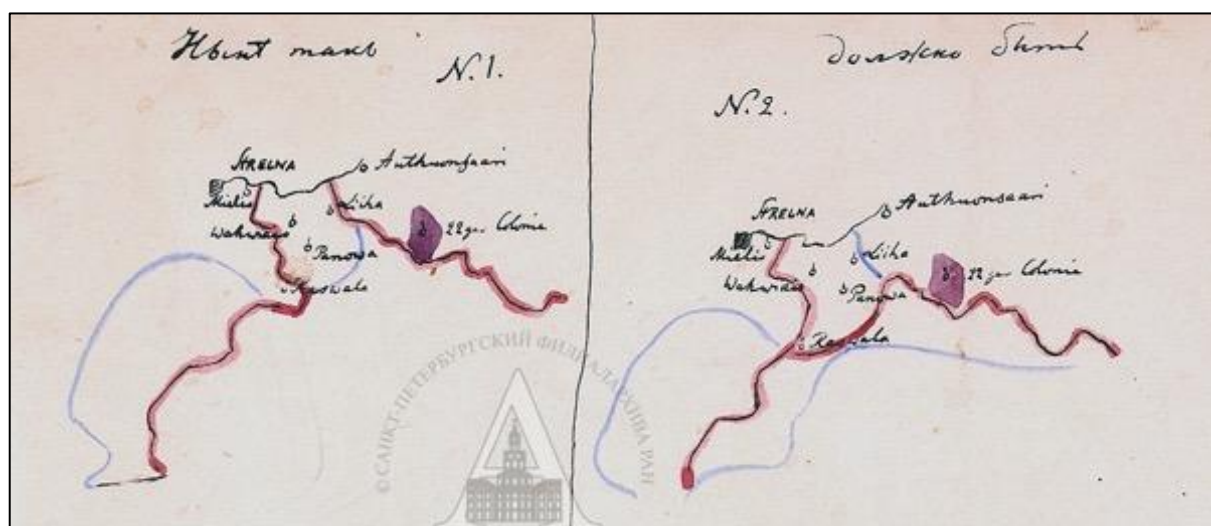 Нынѣ такъ
N. 1.
STRELNA
Authuonsaari
Mielis
Liiha
Wakurais
22 ger Colonie
Panowa
Kaswala
должно быть
N. 2.
STRELNA
Authuonsaari
Mielis
Liiha
Wakurais
22 ger Colonie
Panowa
Kaswala
© САНКТ-ПЕТЕРБУРГСКИЙ ФИЛИАЛ АРХИВА РАН